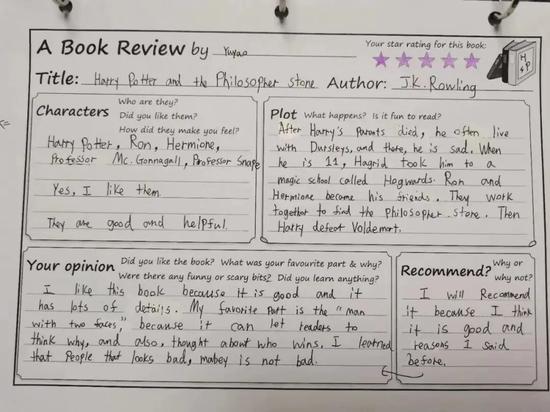 A Book Review by Yuyao
Your star rating for this book:
H
P
Title: Harry Potter and the Philosopher stone Author: J.K. Rowling
Characters Who are they?
Did you like them?
How did they make you feel?
Harry Potter, Ron, Hermione,
Professor Mc.Gonnagall, Professor Snape
Yes, I like them
They are good and helpful.
Plot What happens? Is it fun to read?
After Harry's parents died, he often live
with Dursleys, and there, he is sad. When
he is 11, Hagrid took him to a
magic school called Hogwards. Ron and
Hermione became his friends. They work
together to find the philosopher store. Then
Harry defeat Voldemort.
Your opinion Did you like the book? What was your favourite part & why?
Were there any funny or scary bits? Did you learn anything?
I like this book because it is good and it
has lots of details. My favorite part is the "man
with two faces," because it can let readers to
think why, and also, thought about who wins. I learned
that people that looks bad, mabey is not bad.
Recommend? Why or
why not?
I will Recommend
it because I think
it is good and
reasons I said
before.